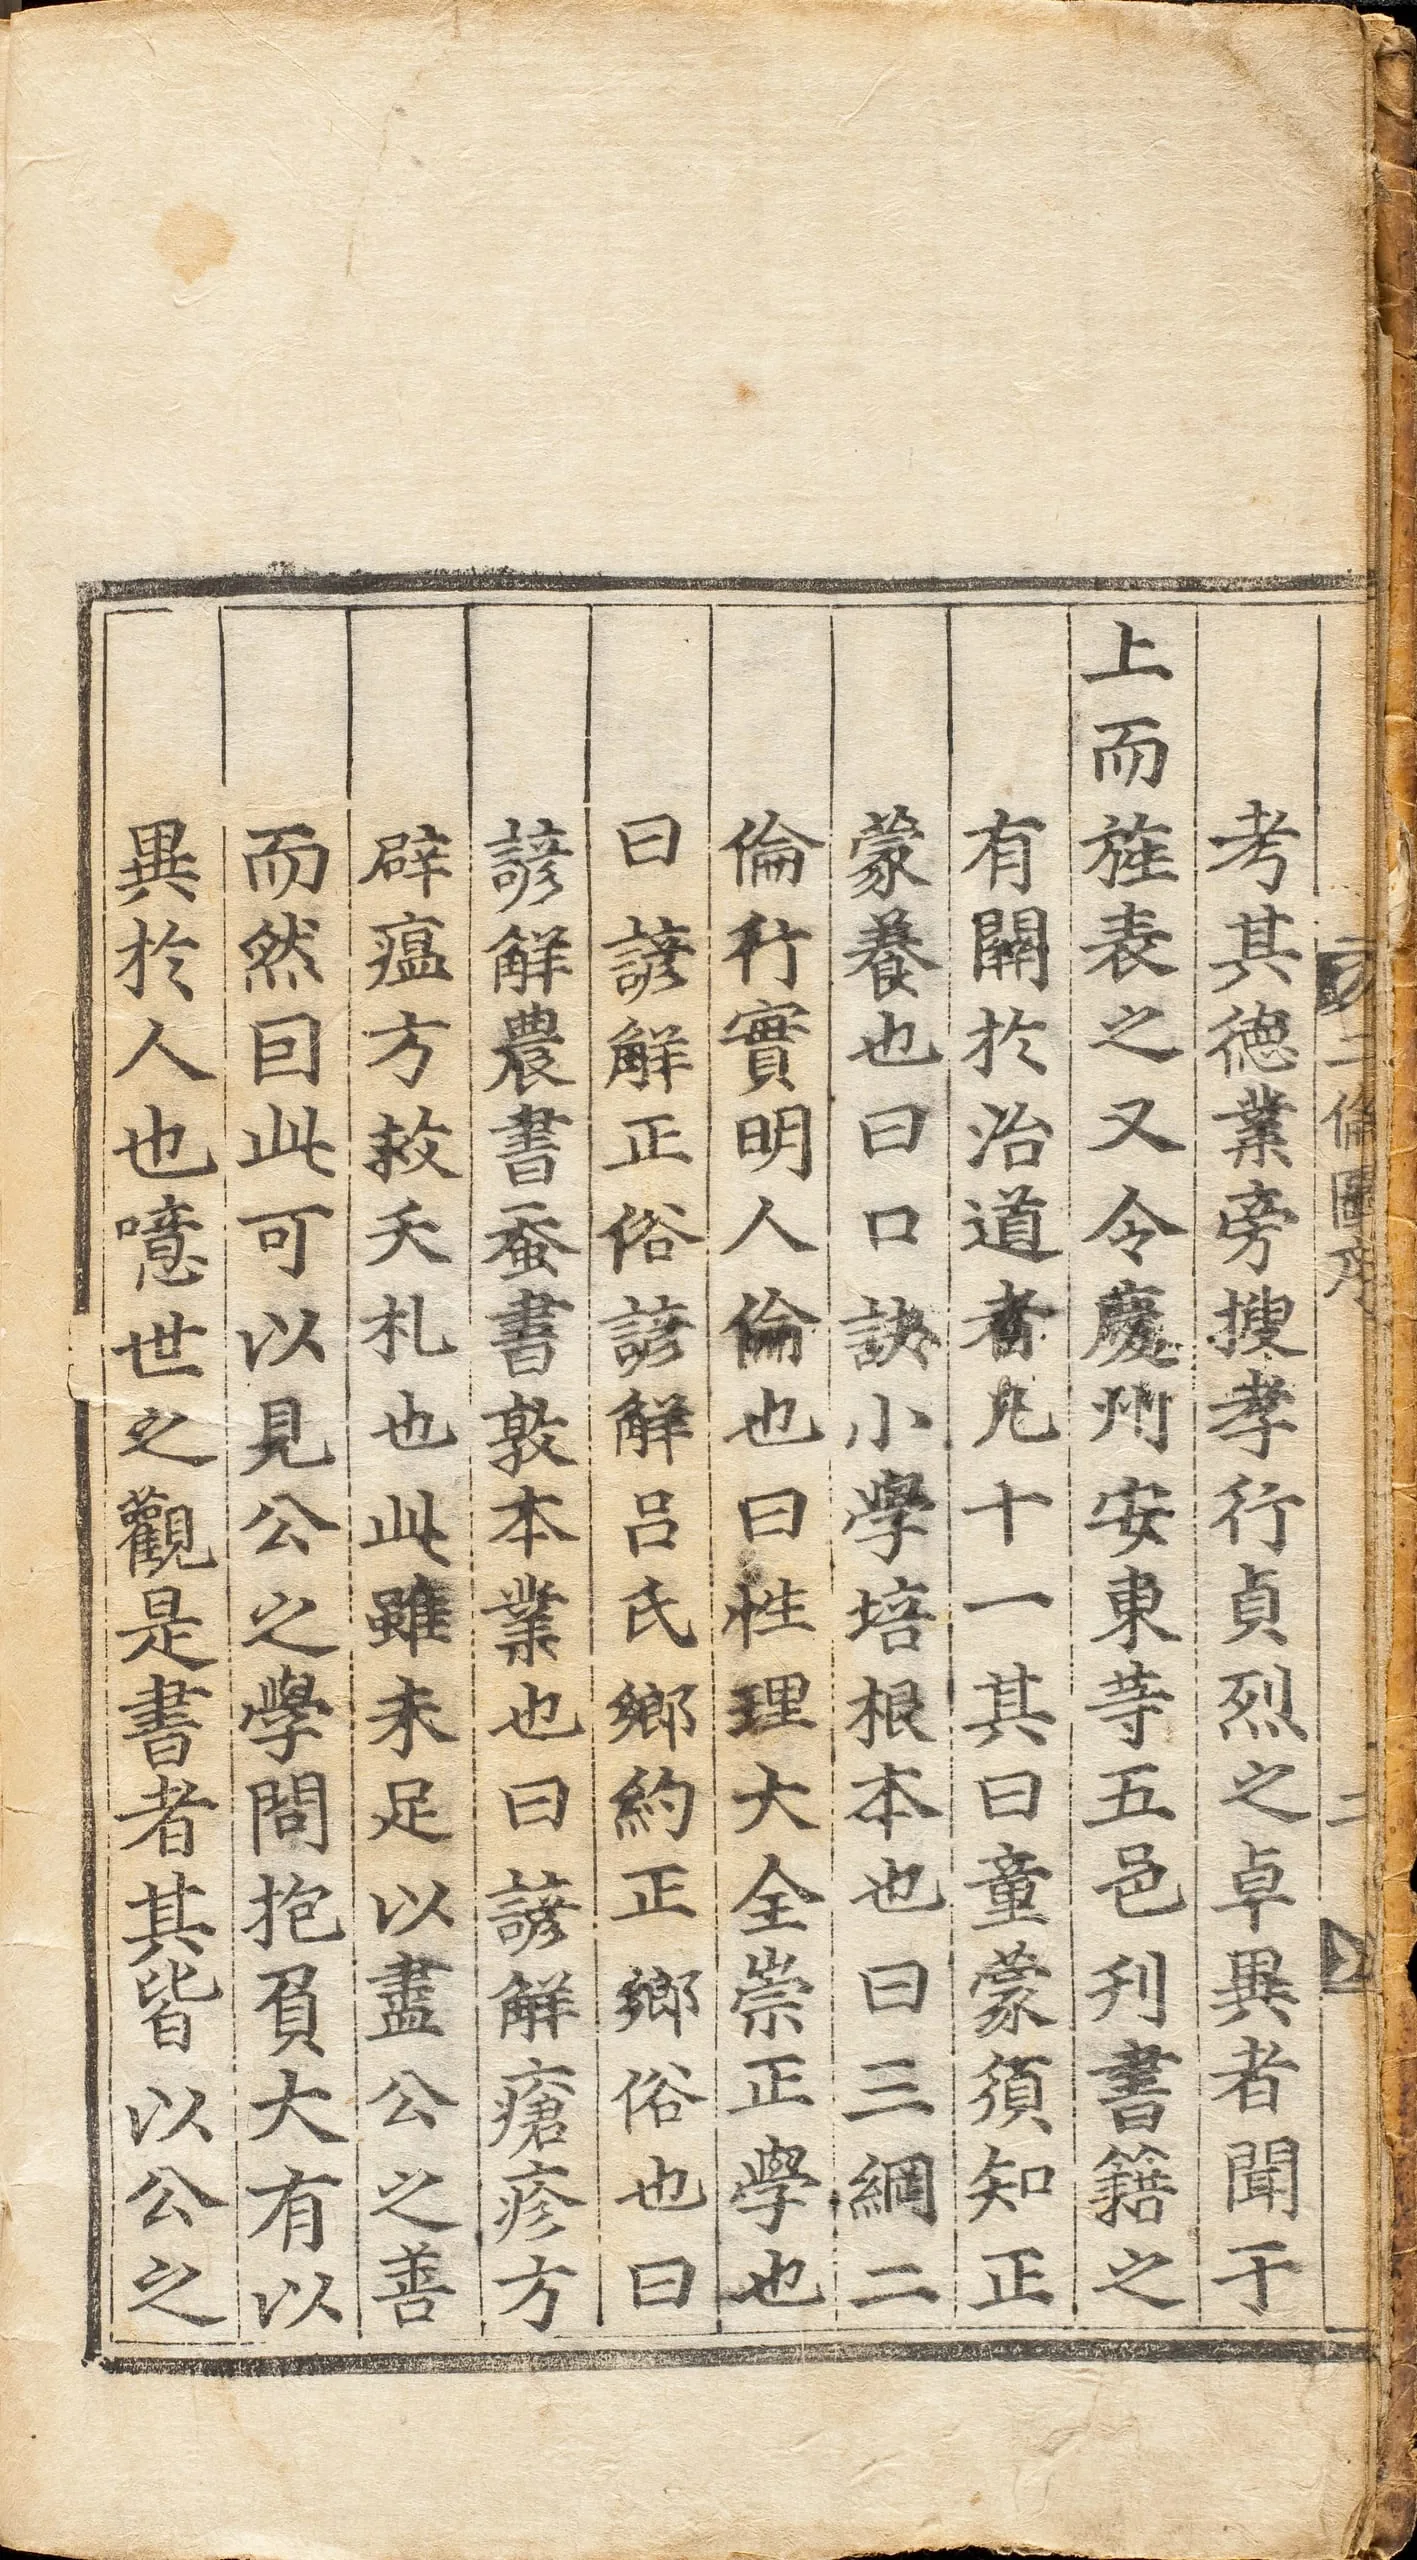 二倫圖序
二
考其德業旁搜孝行貞烈之卓異者聞于
上而旌表之又令慶州安東等五邑刋書籍之
有關於治道者凡十一其曰童蒙須知正
蒙養也曰口訣小學培根本也曰三綱二
倫行實明人倫也曰性理大全崇正學也
曰諺觧正俗諺觧呂氏鄉約正鄉俗也曰
諺觧農書蚕書敦本業也曰諺觧瘡疹方
辟瘟方救夭札也此雖未足以盡公之善
而然因此可以見公之學問抱負大有以
異於人也噫世之觀是書者其皆以公之